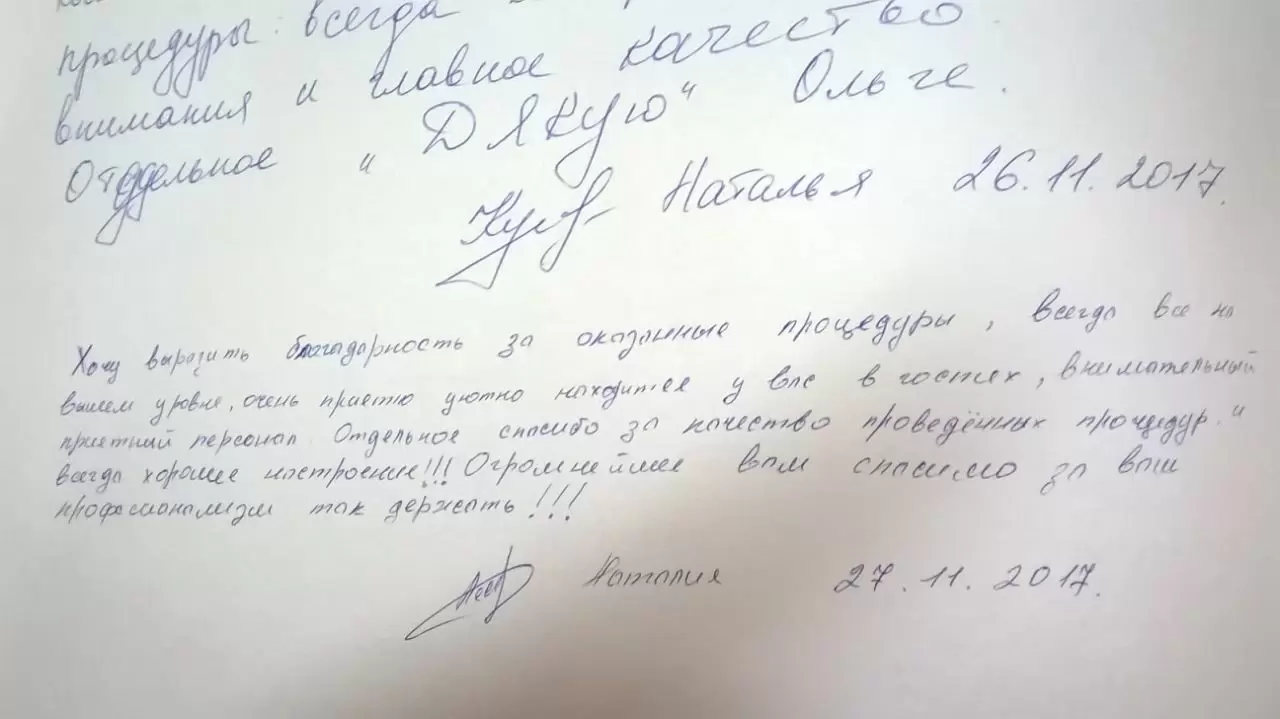 процедуры. всегда
внимания и главное качество.
Отдельное "ДЯКУЮ" Ольге.
Наталья 26.11.2017.
Хочу выразить благодарность за оказанные процедуры, всегда все на
вышем уровне, очень приетно уютно находится у вас в гостях, внимательный
приетный персонал. Отдельное спасибо за качество проведённых процедур. и
всегда хорошее настроение!!! Огромнейшее вам спасимо за ваш
профессионализм так держать!!!
Наталия 27.11.2017.